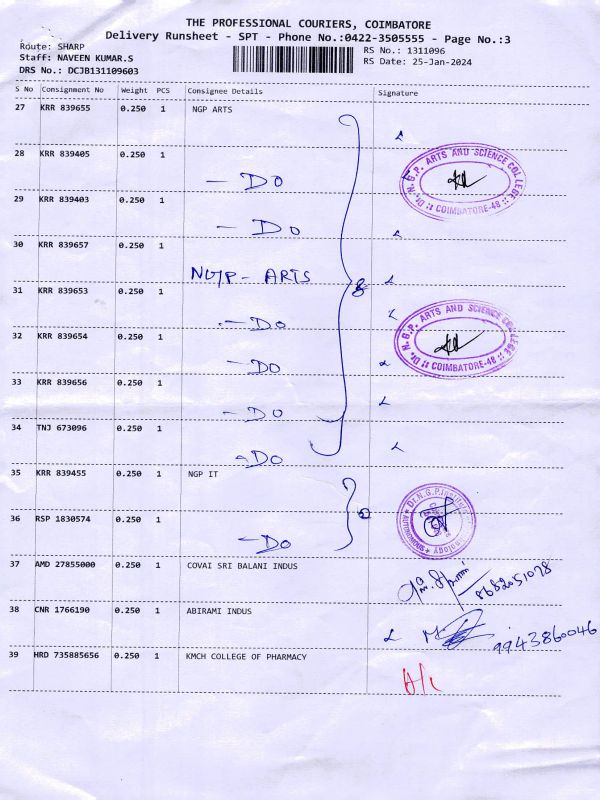 THE PROFESSIONAL COURIERS, COIMBATORE
Delivery Runsheet - SPT - Phone No.:0422-3505555 - Page No.:3
Route: SHARP
Staff: NAVEEN KUMAR.S
DRS No.: DCJB131109603
RS No.: 1311096
RS Date: 25-Jan-2024
S No Consignment No Weight PCS Consignee Details Signature
27 KRR 839655 0.250 1 NGP ARTS
28 KRR 839405 0.250 1
- DO
Dr. N. G. P. ARTS AND SCIENCE COLLEGE
:: COIMBATORE-48 ::
29 KRR 839403 0.250 1
- DO
30 KRR 839657 0.250 1
NGP - ARTS
31 KRR 839653 0.250 1
- DO
32 KRR 839654 0.250 1
- DO
Dr. N. G. P. ARTS AND SCIENCE COLLEGE
:: COIMBATORE-48 ::
33 KRR 839656 0.250 1
- DO
34 TNJ 673096 0.250 1
- DO
35 KRR 839455 0.250 1 NGP IT
36 RSP 1830574 0.250 1
- DO
37 AMD 27855000 0.250 1 COVAI SRI BALANI INDUS
8682051078
38 CNR 1766190 0.250 1 ABIRAMI INDUS
9943860046
39 HRD 735885656 0.250 1 KMCH COLLEGE OF PHARMACY